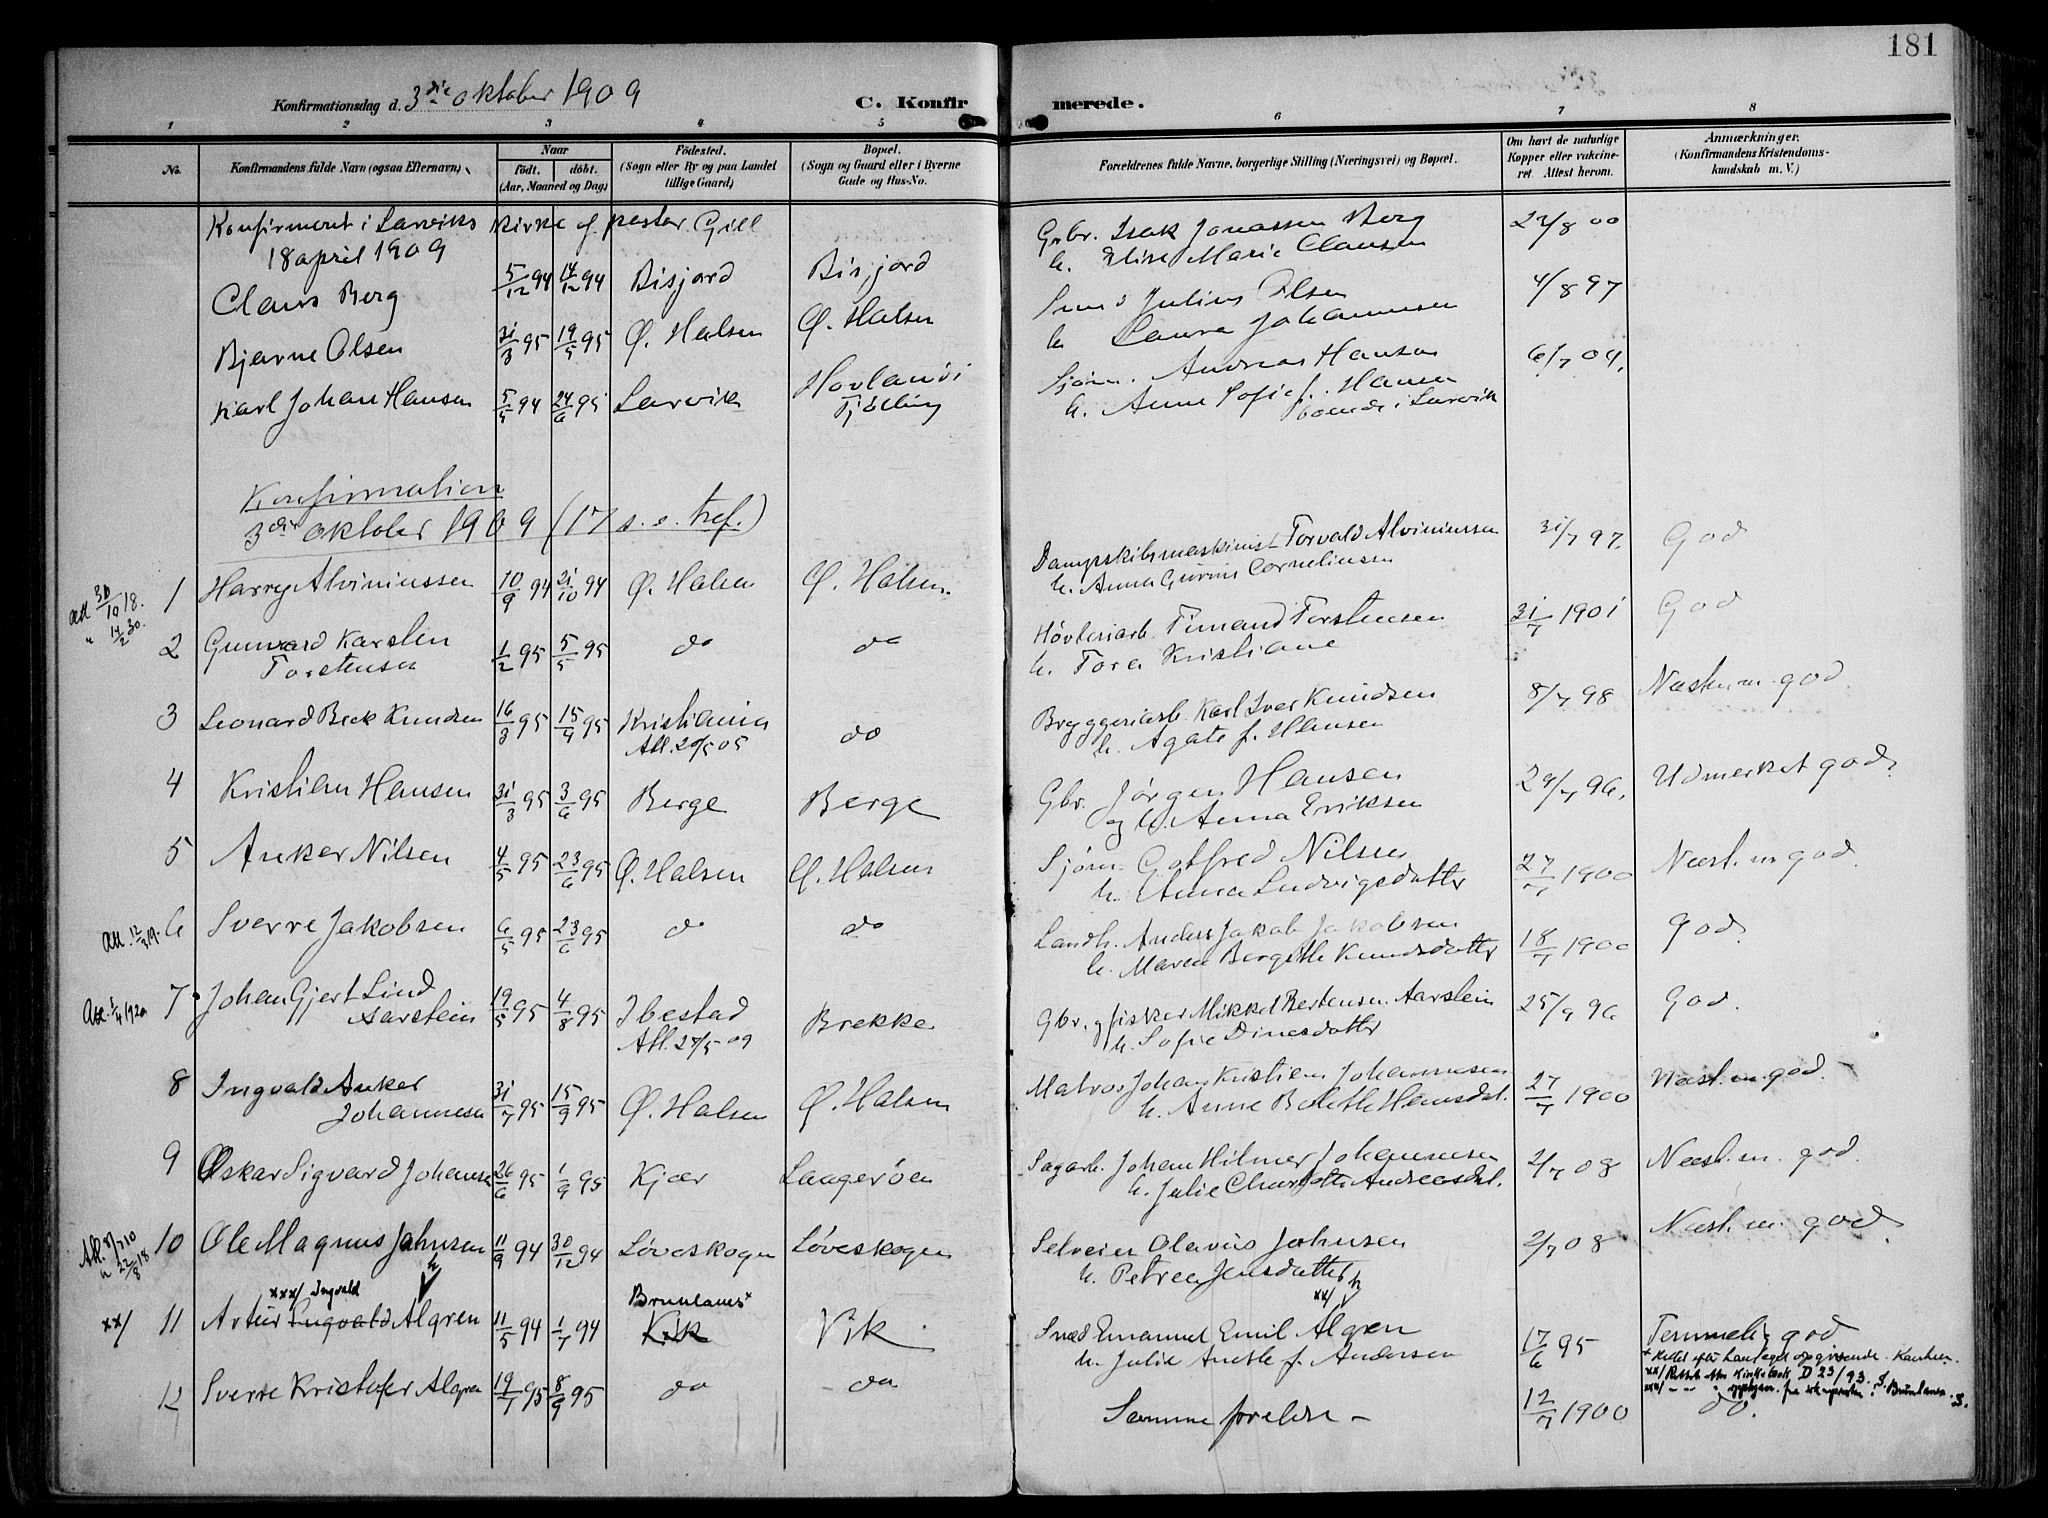 181
Konfirmationsdag d. 3die oktober 1909
C. Konfirmerede.
1 2 3 4 5 6 7 8
No.
Konfirmandens fulde Navn (ogsaa Efternavn).
Naar
født. døbt.
(Aar, Maaned og Dag)
Fødested.
(Sogn eller By og paa Landet
tillige Gaard)
Bopæl.
(Sogn og Gaard eller i Byerne
Gade og Hus-No.
Forældrenes fulde Navne, borgerlige Stilling (Næringsvei) og Bopæl.
Om havt de naturlige
Kopper eller vakcine-
ret. Attest herom.
Anmærkninger.
(Konfirmandens Kristendoms-
kundskab m. V.)
Konfirmeret i Larviks kirke af pastor Gill
18 april 1909
Claus Berg 5/12 94 14/12 94 Bisjord Bisjord
Grbr. Isak Jonassen Berg 27/8 00
h. Elise Marie Clausen
Bjarne Olsen 31/3 95 19/5 95 Ø. Halsen Ø. Halsen
Smed Julius Olsen 4/8 97
h. Laura Johannesen
Karl Johan Hansen 5/5 94 24/6 95 Larvik Hovland i
Tjølling
Sjøm. Andreas Hansen 6/7 09.
h. Anne Sofie f. Hansen
boende i Larvik
Konfirmation
3die oktober 1909 (17 s. e. tref.)
att 30/10 18.
" 14/2 30.
1 Harry Alviniussen 10/9 94 21/10 94 Ø. Halsen Ø. Halsen.
Dampskibsmaskinist Torvald Alviniussen 31/7 97. God
h. Anna Gurine Corneliusen
2 Gunvard Karsten
Torstensen 1/2 95 5/5 95 do do
Høvleriarb. Finand Torstensen 31/7 1901 God
h. Tora Kristiane
3 Leonard Beck Knudsen 16/3 95 15/4 95 Kristiania do
Att. 20/5 05
Bryggeriarb. Karl Iver Knudsen 8/7 98 Næsten m. god
h. Agate f. Hansen
4 Kristian Hansen 31/3 95 3/6 95 Berge Berge
Gbr. Jørgen Hansen 29/7 96. Udmerket god.
og h. Anna Eriksen
5 Anker Nilsen 4/5 95 23/6 95 Ø. Halsen Ø. Halsen
Sjøm. Gotfred Nilsen 27/7 1900 Næst. m god.
h. Anna Ludvigsdatter
Att. 12/3 19.
6 Sverre Jakobsen 6/5 95 23/6 95 do do
Landh. Anders Jakob Jakobsen 18/7 1900 God.
h. Maren Bergithe Knudsdatter
7 Johan Gjert Lind
Aarstein 19/5 95 4/8 95 Ibestad Brekke
Att. 27/5 09
Gbr. og fisker Mikkel Bertensen Aarstein 25/9 96 God.
h. Sofie Dinesdatter
8 Ingvald Anker
Johannesen 31/7 95 15/9 95 Ø. Halsen Ø. Halsen
Matros Johan Kristian Johannesen 27/7 1900 Næst. m god.
h. Anne Bolette Hansdat.
9 Oskar Sigvard Johansen 26/6 95 1/9 95 Kjær Laagerøen
Sagarb. Johan Hilmer Johannesen 2/7 08 Næst. m. god.
h. Julie Charlotte Andreasdat.
10 Ole Magnus Jahnsen 11/9 94 30/12 94 Løveskogen Løveskogen
Selveier Olavus Jahnsen 2/7 08 Næst. m. god.
h. Petrea Jensdatter
xxx/ Ingvald
xx/ 11 Artur Ingvald Algren 11/5 94 1/7 94 Brunlanes x Vik Vik
xx/ h
Smed Emanuel Emil Algren 17/6 95 Temmelig god
h. Julie Anette f. Andersen
12 Sverre Kristofer Algren 19/7 95 8/9 95 do do
Samme foreldre - 12/7 1900 do.